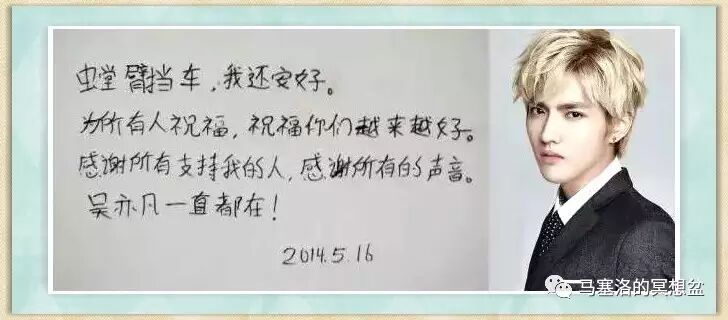 螳臂挡车，我还安好。
为所有人祝福，祝福你们越来越好。
感谢所有支持我的人，感谢所有的声音。
吴亦凡一直都在！
2014.5.16
马塞洛的冥想盆